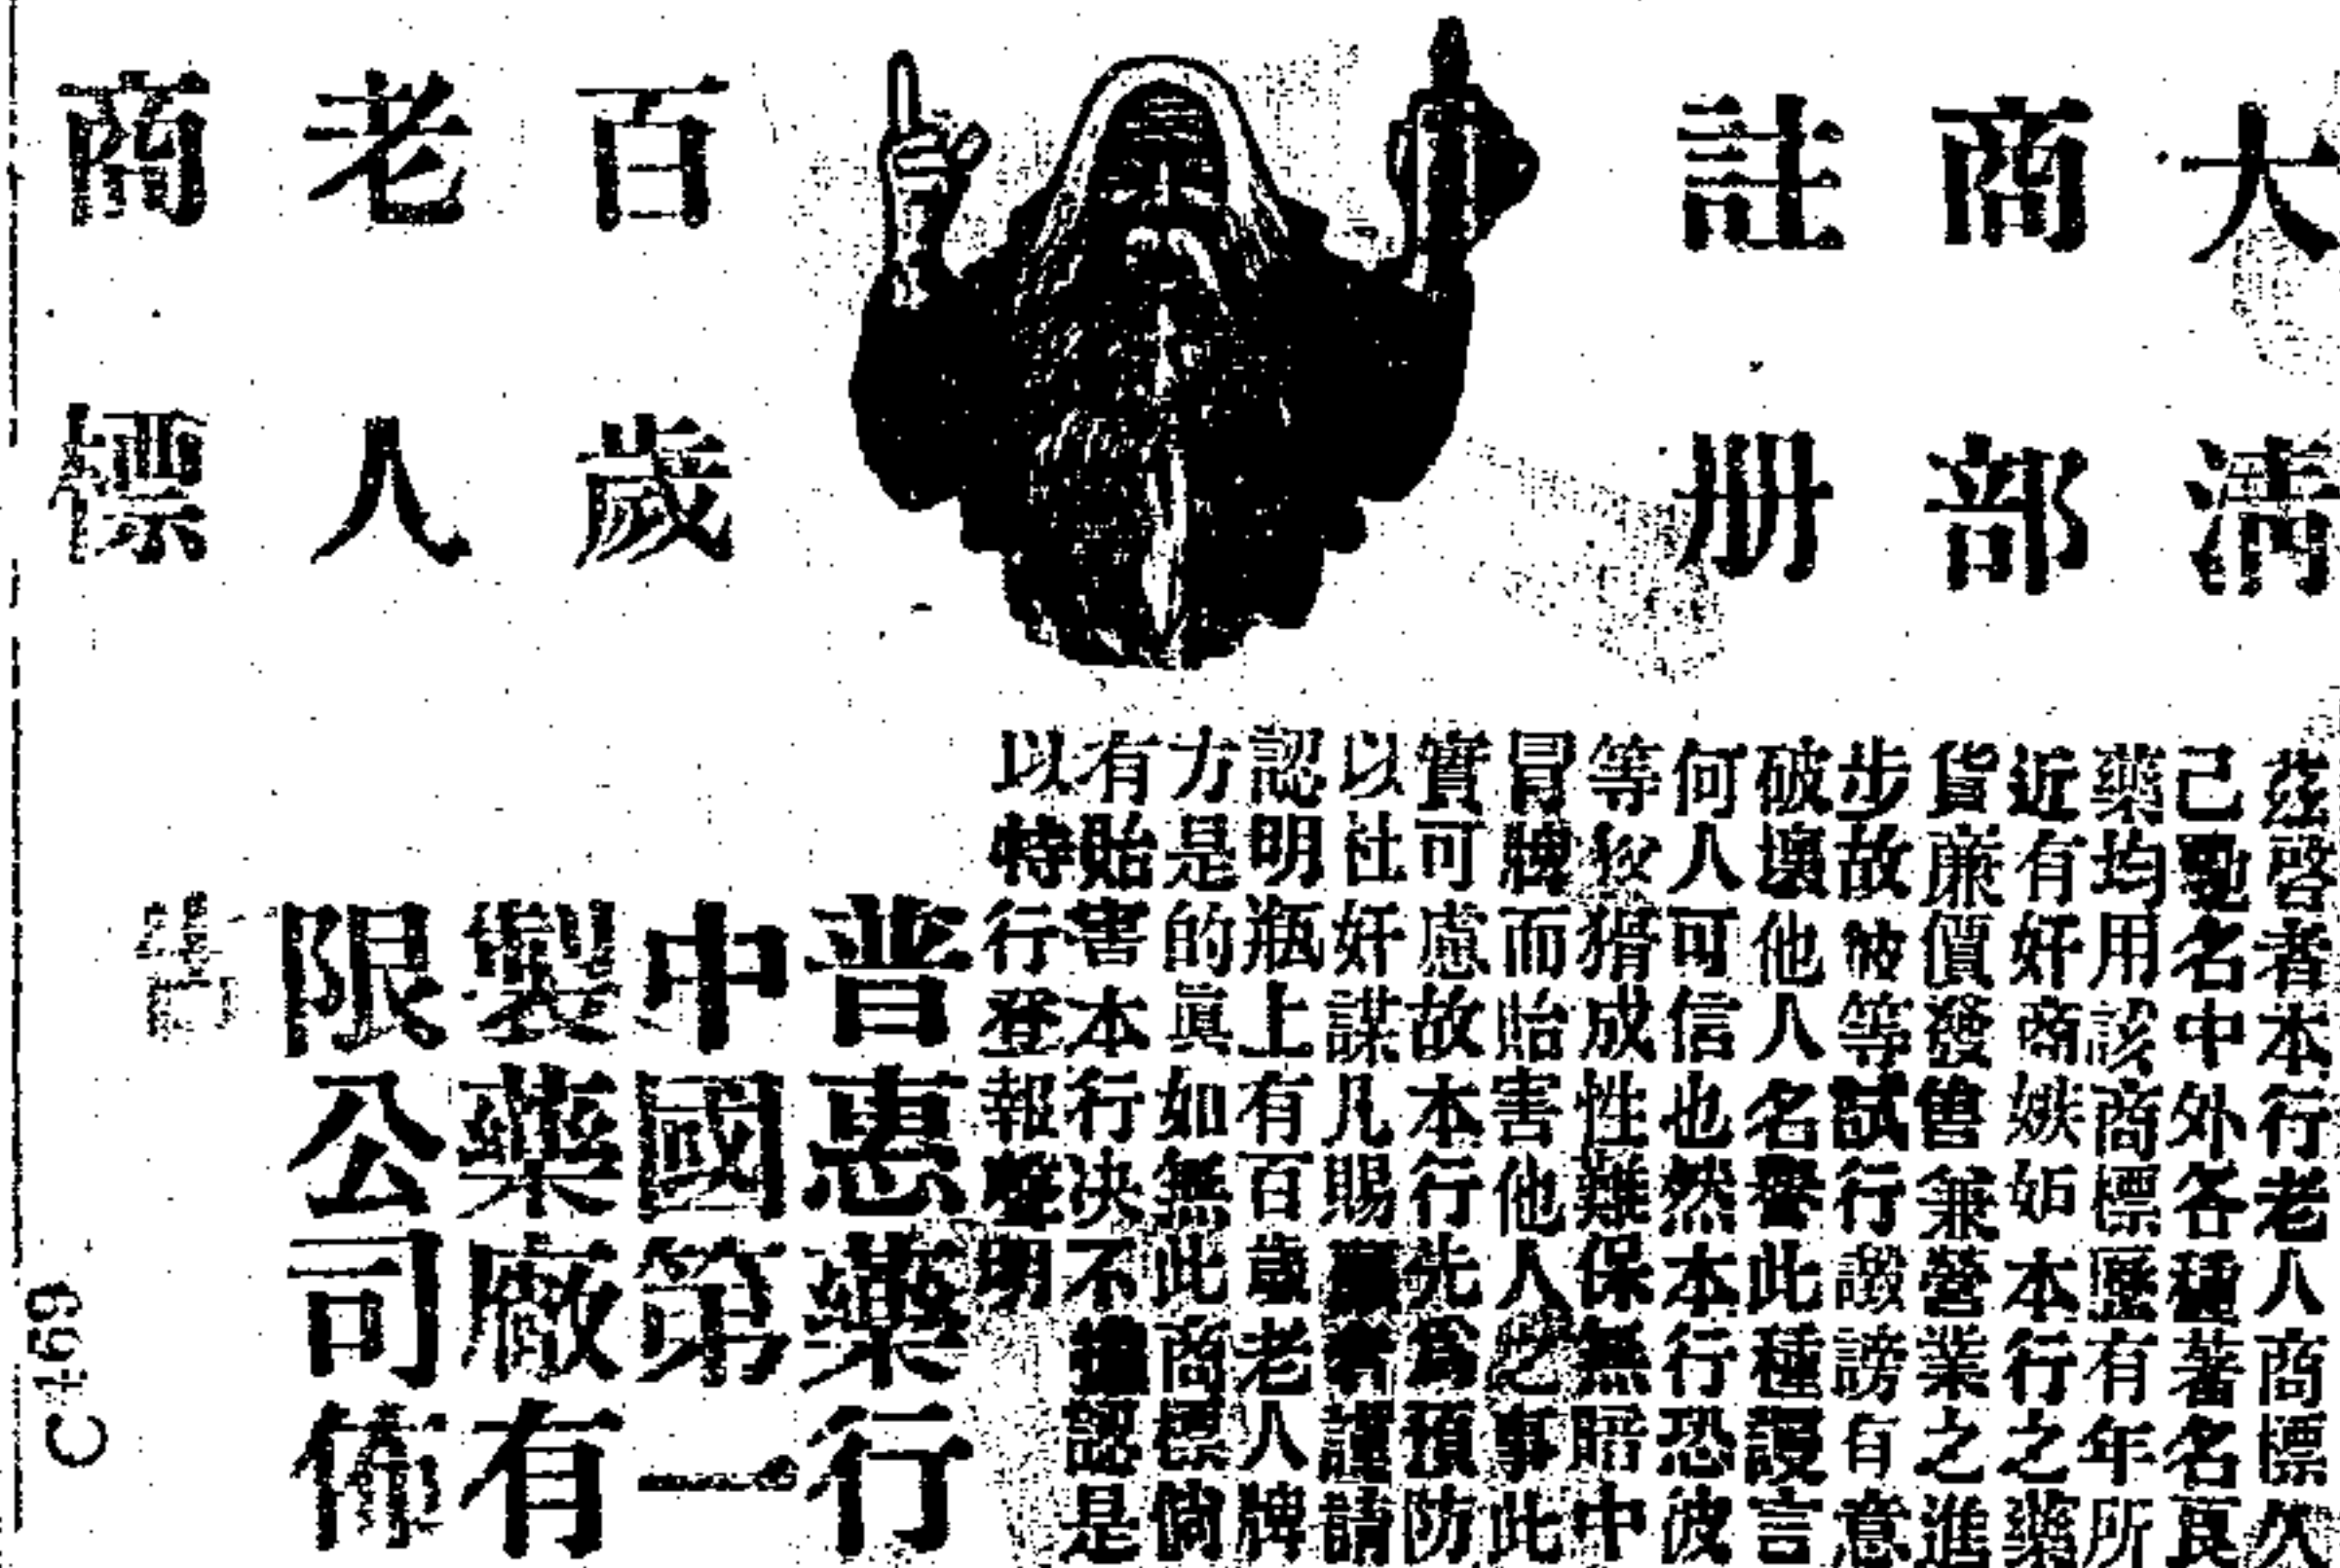 大清
商部
註册
百歲
老人
商標
茲啓者本行老人商標久
己馳名中外各種著名良
藥均用該商標歷有年所
近有奸商嫉妬本行之藥
貨廉價發售兼營業之進
步故彼等試行譭謗有意
破壞他人名譽此種謾言
何人可信也然本行恐彼
等狡猾成性難保無暗中
冒牌而貽害他人之事此
實可慮故本行先爲預防
以杜奸謀凡賜顧者謹請
認明瓶上有百歲老人牌
方是的眞如無此商標倘
有貽害本行决不擔認是
以特行登報聲明
普惠藥行
中國第一
製藥廠有
限公司佈
告
C469